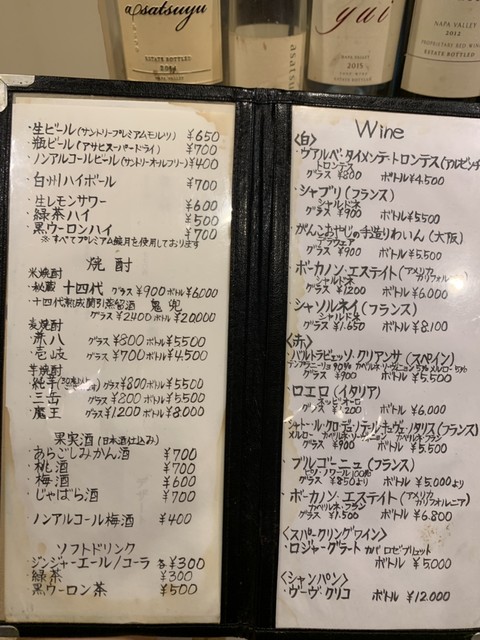 asatsuyu
ESTATE BOTTLED
yui
NAPA VALLEY
2015
NAPA VALLEY
2012
PROPRIETARY RED WINE
ESTATE BOTTLED
・生ビール(サントリープレミアムモルツ) ¥650
瓶ビール(アサヒスーパードライ) ¥700
ノンアルコールビール(サントリーオールフリー)¥400
・白州ハイボール ¥700
・生レモンサワー ¥600
・緑茶ハイ ¥500
・黒ウーロンハイ ¥700
※すべてプレミアム鏡月を使用しております
焼酎
米焼酎
・秘蔵 十四代 グラス¥900ボトル¥6,000
・十四代熟成蘭引蒸留酒 鬼兜
グラス¥2400ボトル¥20000
麦焼酎
・兼八 グラス¥800ボトル¥5500
・壱岐 グラス¥700ボトル¥4,500
芋焼酎
グラス¥800ボトル¥5500
・三岳 グラス¥800ボトル¥5500
・魔王 グラス¥1200ボトル¥8000
果実酒(日本酒仕込み)
・あらごしみかん酒 ¥700
・桃酒 ¥700
・梅酒 ¥600
・じゃばら酒 ¥700
・ノンアルコール梅酒 ¥400
ソフトドリンク
・ジンジャーエール/コーラ 各¥300
・緑茶 ¥300
・黒ウーロン茶 ¥500
Wine
〈白〉
・ヴァルベ・タイメンテ・トロンテス(アルゼンチ
トロンテス
グラス ¥800 ボトル¥4,500
・シャブリ(フランス)
シャルドネ
グラス ¥900 ボトル¥5500
・がんこおやじの手造りわいん(大阪)
デラウェア
グラス ¥900 ボトル¥5,500
・ボーカノン・エステイト(アメリカ
カリフォルニア)
シャルドネ
グラス ¥1200 ボトル ¥6,000
・シャソルネイ(フランス)
シャルドネ
グラス ¥1.650 ボトル ¥8,100
〈赤〉
クリアンサ(スペイン)
テンプラニーリョ90% カベルネ・ソーヴィニヨン5% メルロー5%
グラス ¥900 ボトル ¥5,500
・ロエロ(イタリア)
ネッビオーロ
グラス ¥1,200 ボトル ¥6,000
(フランス)
メルロー カベルネ・ソーヴィニヨン カベルネ・フラン
グラス ¥900 ボトル ¥5,500
・ブルゴーニュ(フランス)
ピノ・ノワール100%
グラス ¥850より ボトル ¥5,000より
・ボーカノン・エステイト(アメリカ
カリフォルニア)
カベルネ・フラン
グラス ¥1,500 ボトル ¥6.800
〈スパークリングワイン〉
・ロジャーグラート カバ ロゼブリュット
ボトル ¥5,000
〈シャンパン〉
・ヴーヴ・クリコ ボトル ¥12,000